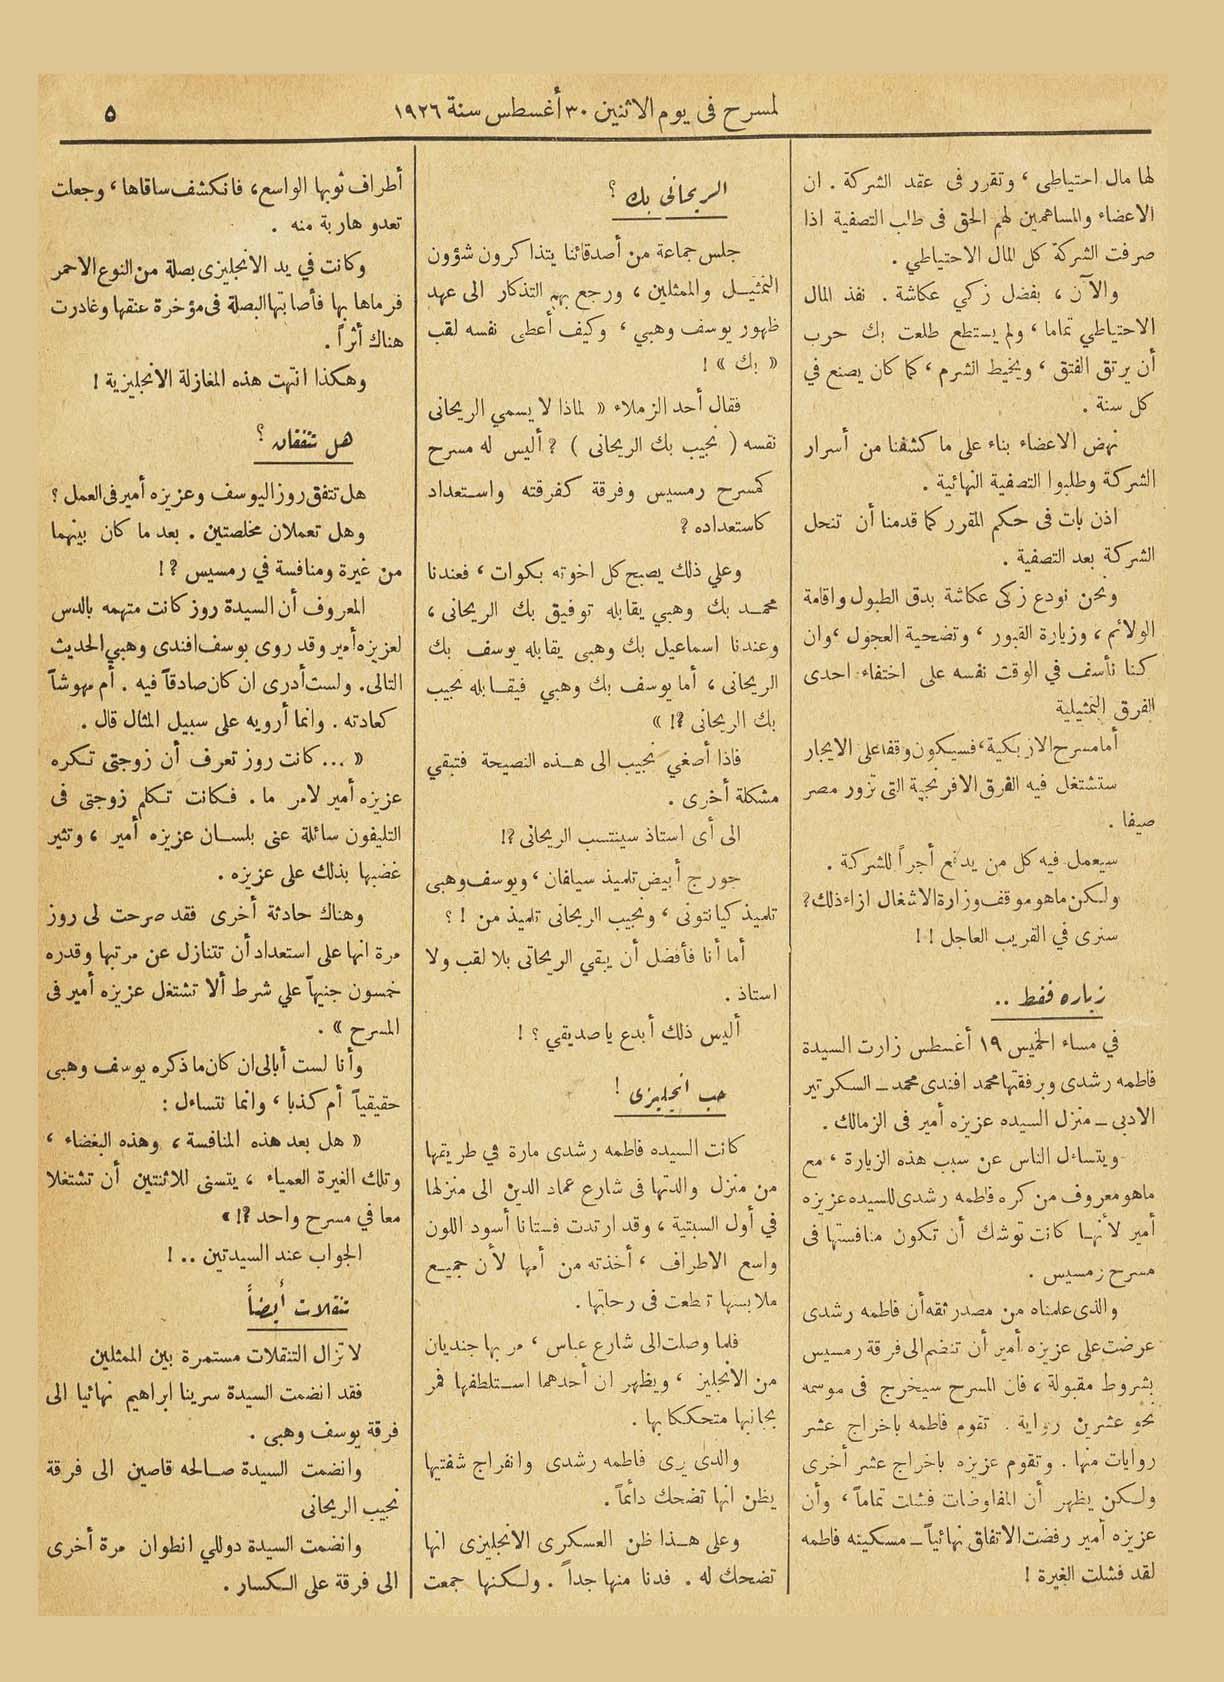 لمسرح فى يوم الاثنين ٣٠ أغسطس سنة ١٩٢٦
٥
لها مال احتياطى ، وتقرر فى عقد الشركة . ان
الاعضاء والمساهمين لهم الحق فى طلب التصفية اذا
صرفت الشركة كل المال الاحتياطي .
والآن ، بفضل زكي عكاشة . نفذ المال
الاحتياطي تماما ، ولم يستطع طلعت بك حرب
أن يرتق الفتق ، ويخيط الشرم ، كما كان يصنع في
كل سنة .
نهض الاعضاء بناء على ما كشفنا من أسرار
الشركة وطلبوا التصفية النهائية .
اذن بات فى حكم المقرر كما قدمنا أن تنحل
الشركة بعد التصفية .
ونحن نودع زكى عكاشة بدق الطبول واقامة
الولائم ، وزيارة القبور ، وتضحية العجول ، وان
كنا نأسف في الوقت نفسه على اختفاء احدى
الفرق التمثيلية
أما مسرح الازبكية ، فسيكون وقفا على الايجار
ستشتغل فيه الفرق الافرنجية التى تزور مصر
صيفا .
سيعمل فيه كل من يدفع أجراً للشركة .
ولكن ماهو موقف وزارة الاشغال ازاء ذلك ?
سنرى في القريب العاجل ! !
زياره فقط ..
في مساء الخميس ١٩ أغسطس زارت السيدة
فاطمه رشدى وبرفقتها محمد افندى محمد ــ السكرتير
الادبى ــ منزل السيده عزيزه أمير فى الزمالك .
ويتساءل الناس عن سبب هذه الزيارة ، مع
ماهو معروف من كره فاطمه رشدى للسيده عزيزه
أمير لأنها كانت توشك أن تكون منافستها فى
مسرح رمسيس .
والذى علمناه من مصدر ثقه أن فاطمه رشدى
عرضت على عزيزه أمير أن تنضم الى فرقة رمسيس
بشروط مقبولة ، فان المسرح سيخرج فى موسمه
نحو عشرين رواية . تقوم فاطمه باخراج عشر
روايات منها . وتقوم عزيزه باخراج عشر أخرى
ولكن يظهر أن المفاوضات فشلت تماماً ، وأن
عزيزه أمير رفضت الاتفاق نهائياً ــ مسكينه فاطمه
لقد فشلت الغيرة !
الريحانى بك ؟
جلس جماعة من أصدقائنا يتذاكرون شؤون
التمثيل والممثلين ، ورجع بهم التذكار الى عهد
ظهور يوسف وهبي ، وكيف أعطى نفسه لقب
« بك » !
فقال أحد الزملاء « لماذا لا يسمي الريحانى
نفسه ( نجيب بك الريحانى ) ? أليس له مسرح
كمسرح رمسيس وفرقة كفرقته واستعداد
كاستعداده ?
وعلي ذلك يصبح كل اخوته بكوات ، فعندنا
محمد بك وهبي يقابله توفيق بك الريحانى ،
وعندنا اسماعيل بك وهبى يقابله يوسف بك
الريحانى ، أما يوسف بك وهبي فيقابله نجيب
بك الريحانى ?! »
فاذا أصغي نجيب الى هذه النصيحة فتبقي
مشكلة أخرى .
الى أى استاذ سينتسب الريحانى ?!
جورج أبيض تلميذ سيلفان ، ويوسف وهبى
تلميذ كيانتونى ، ونجيب الريحانى تلميذ من ! ؟
أما أنا فأفضل أن يبقي الريحانى بلا لقب ولا
استاذ .
أليس ذلك أبدع يا صديقي ؟ !
حب انجليزى !
كانت السيده فاطمه رشدى مارة في طريقها
من منزل والدتها فى شارع عماد الدين الى منزلها
في أول السبتية ، وقد ارتدت فستانا أسود اللون
واسع الاطراف ، أخذته من أمها لأن جميع
ملابسها تقطعت فى رحلتها .
فلما وصلت الى شارع عباس ، مر بها جنديان
من الانجليز ، ويظهر ان أحدهما استلطفها فمر
بجانبها متحككا بها .
والذى يرى فاطمه رشدى وانفراج شفتيها
يظن انها تضحك دائماً .
وعلى هذا ظن العسكرى الانجليزى انها
تضحك له . فدنا منها جداً . ولكنها جمعت
أطراف ثوبها الواسع ، فانكشف ساقاها ، وجعلت
تعدو هاربة منه .
وكانت في يد الانجليزى بصلة من النوع الاحمر
فرماها بها فأصابتها البصلة فى مؤخرة عنقها وغادرت
هناك أثراً .
وهكذا انتهت هذه المغازلة الانجليزية !
هل تتفقان ؟
هل تتفق روز اليوسف وعزيزه أمير فى العمل ؟
وهل تعملان مخلصتين . بعد ما كان بينهما
من غيرة ومنافسة في رمسيس ?!
المعروف أن السيدة روز كانت متهمه بالدس
لعزيزه أمير وقد روى يوسف افندى وهبي الحديث
التالى . ولست أدرى ان كان صادقاً فيه . أم مهوشاً
كعادته . وانما أرويه على سبيل المثال قال .
« ... كانت روز تعرف أن زوجتى تكره
عزيزه أمير لامر ما . فكانت تكلم زوجتى فى
التليفون سائلة عنى بلسان عزيزه أمير ، وتثير
غضبها بذلك على عزيزه .
وهناك حادثة أخرى فقد صرحت لى روز
مرة انها على استعداد أن تتنازل عن مرتبها وقدره
خمسون جنيهاً علي شرط ألا تشتغل عزيزه أمير فى
المسرح » .
وأنا لست أبالى ان كان ما ذكره يوسف وهبى
حقيقياً أم كذبا ، وانما نتساءل :
« هل بعد هذه المنافسة ، وهذه البغضاء ،
وتلك الغيرة العمياء ، يتسنى للاثنتين أن تشتغلا
معا في مسرح واحد ?! »
الجواب عند السيدتين .. !
تنقلات أيضاً
لا تزال التنقلات مستمرة بين الممثلين
فقد انضمت السيدة سرينا ابراهيم نهائيا الى
فرقة يوسف وهبى .
وانضمت السيدة صالحه قاصين الى فرقة
نجيب الريحانى
وانضمت السيدة دوللي انطوان مرة أخرى
الى فرقة على الكسار .